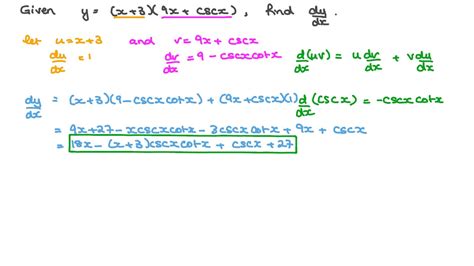 Given y = (x+3)(9x + cscx), find dy/dx.
let u = x+3 and v = 9x + cscx
du/dx = 1 dv/dx = 9 - cscxcotx d/dx(uv) = u dv/dx + v du/dx
dy/dx = (x+3)(9-cscxcotx) + (9x+cscx)(1) d/dx(cscx) = -cscxcotx
= 9x+27-xcscxcotx - 3cscxcotx + 9x + cscx
= 18x - (x+3)cscxcotx + cscx + 27